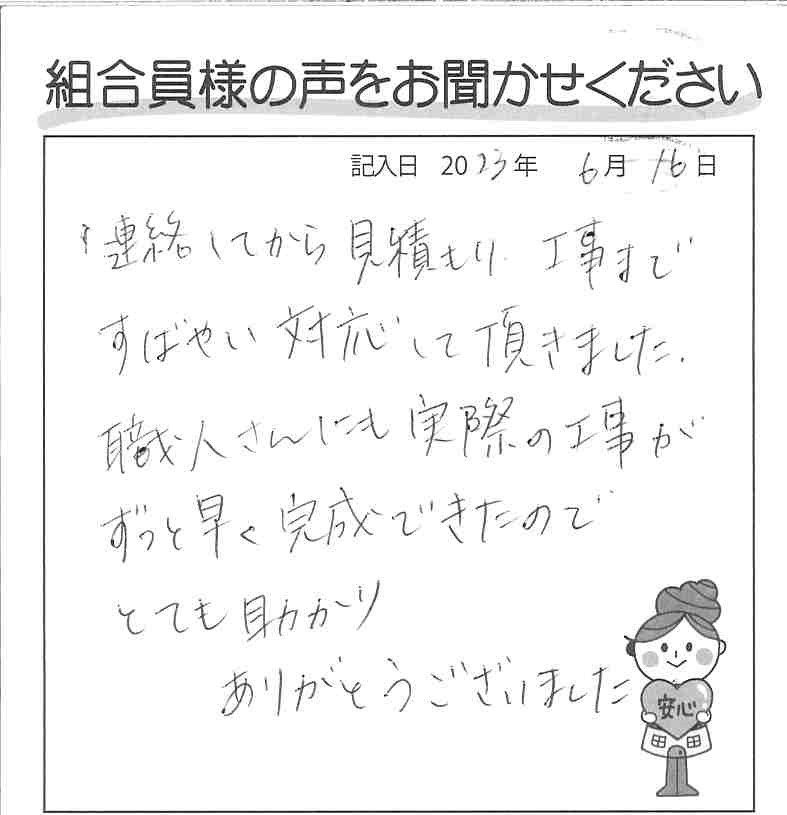 組合員様の声をお聞かせください
記入日 2023年 6月 16日
連絡してから見積もり、工事まで
すばやい対応して頂きました.
職人さんにも実際の工事が
ずっと早く完成できたので
とても助かり
ありがとうございました
安心